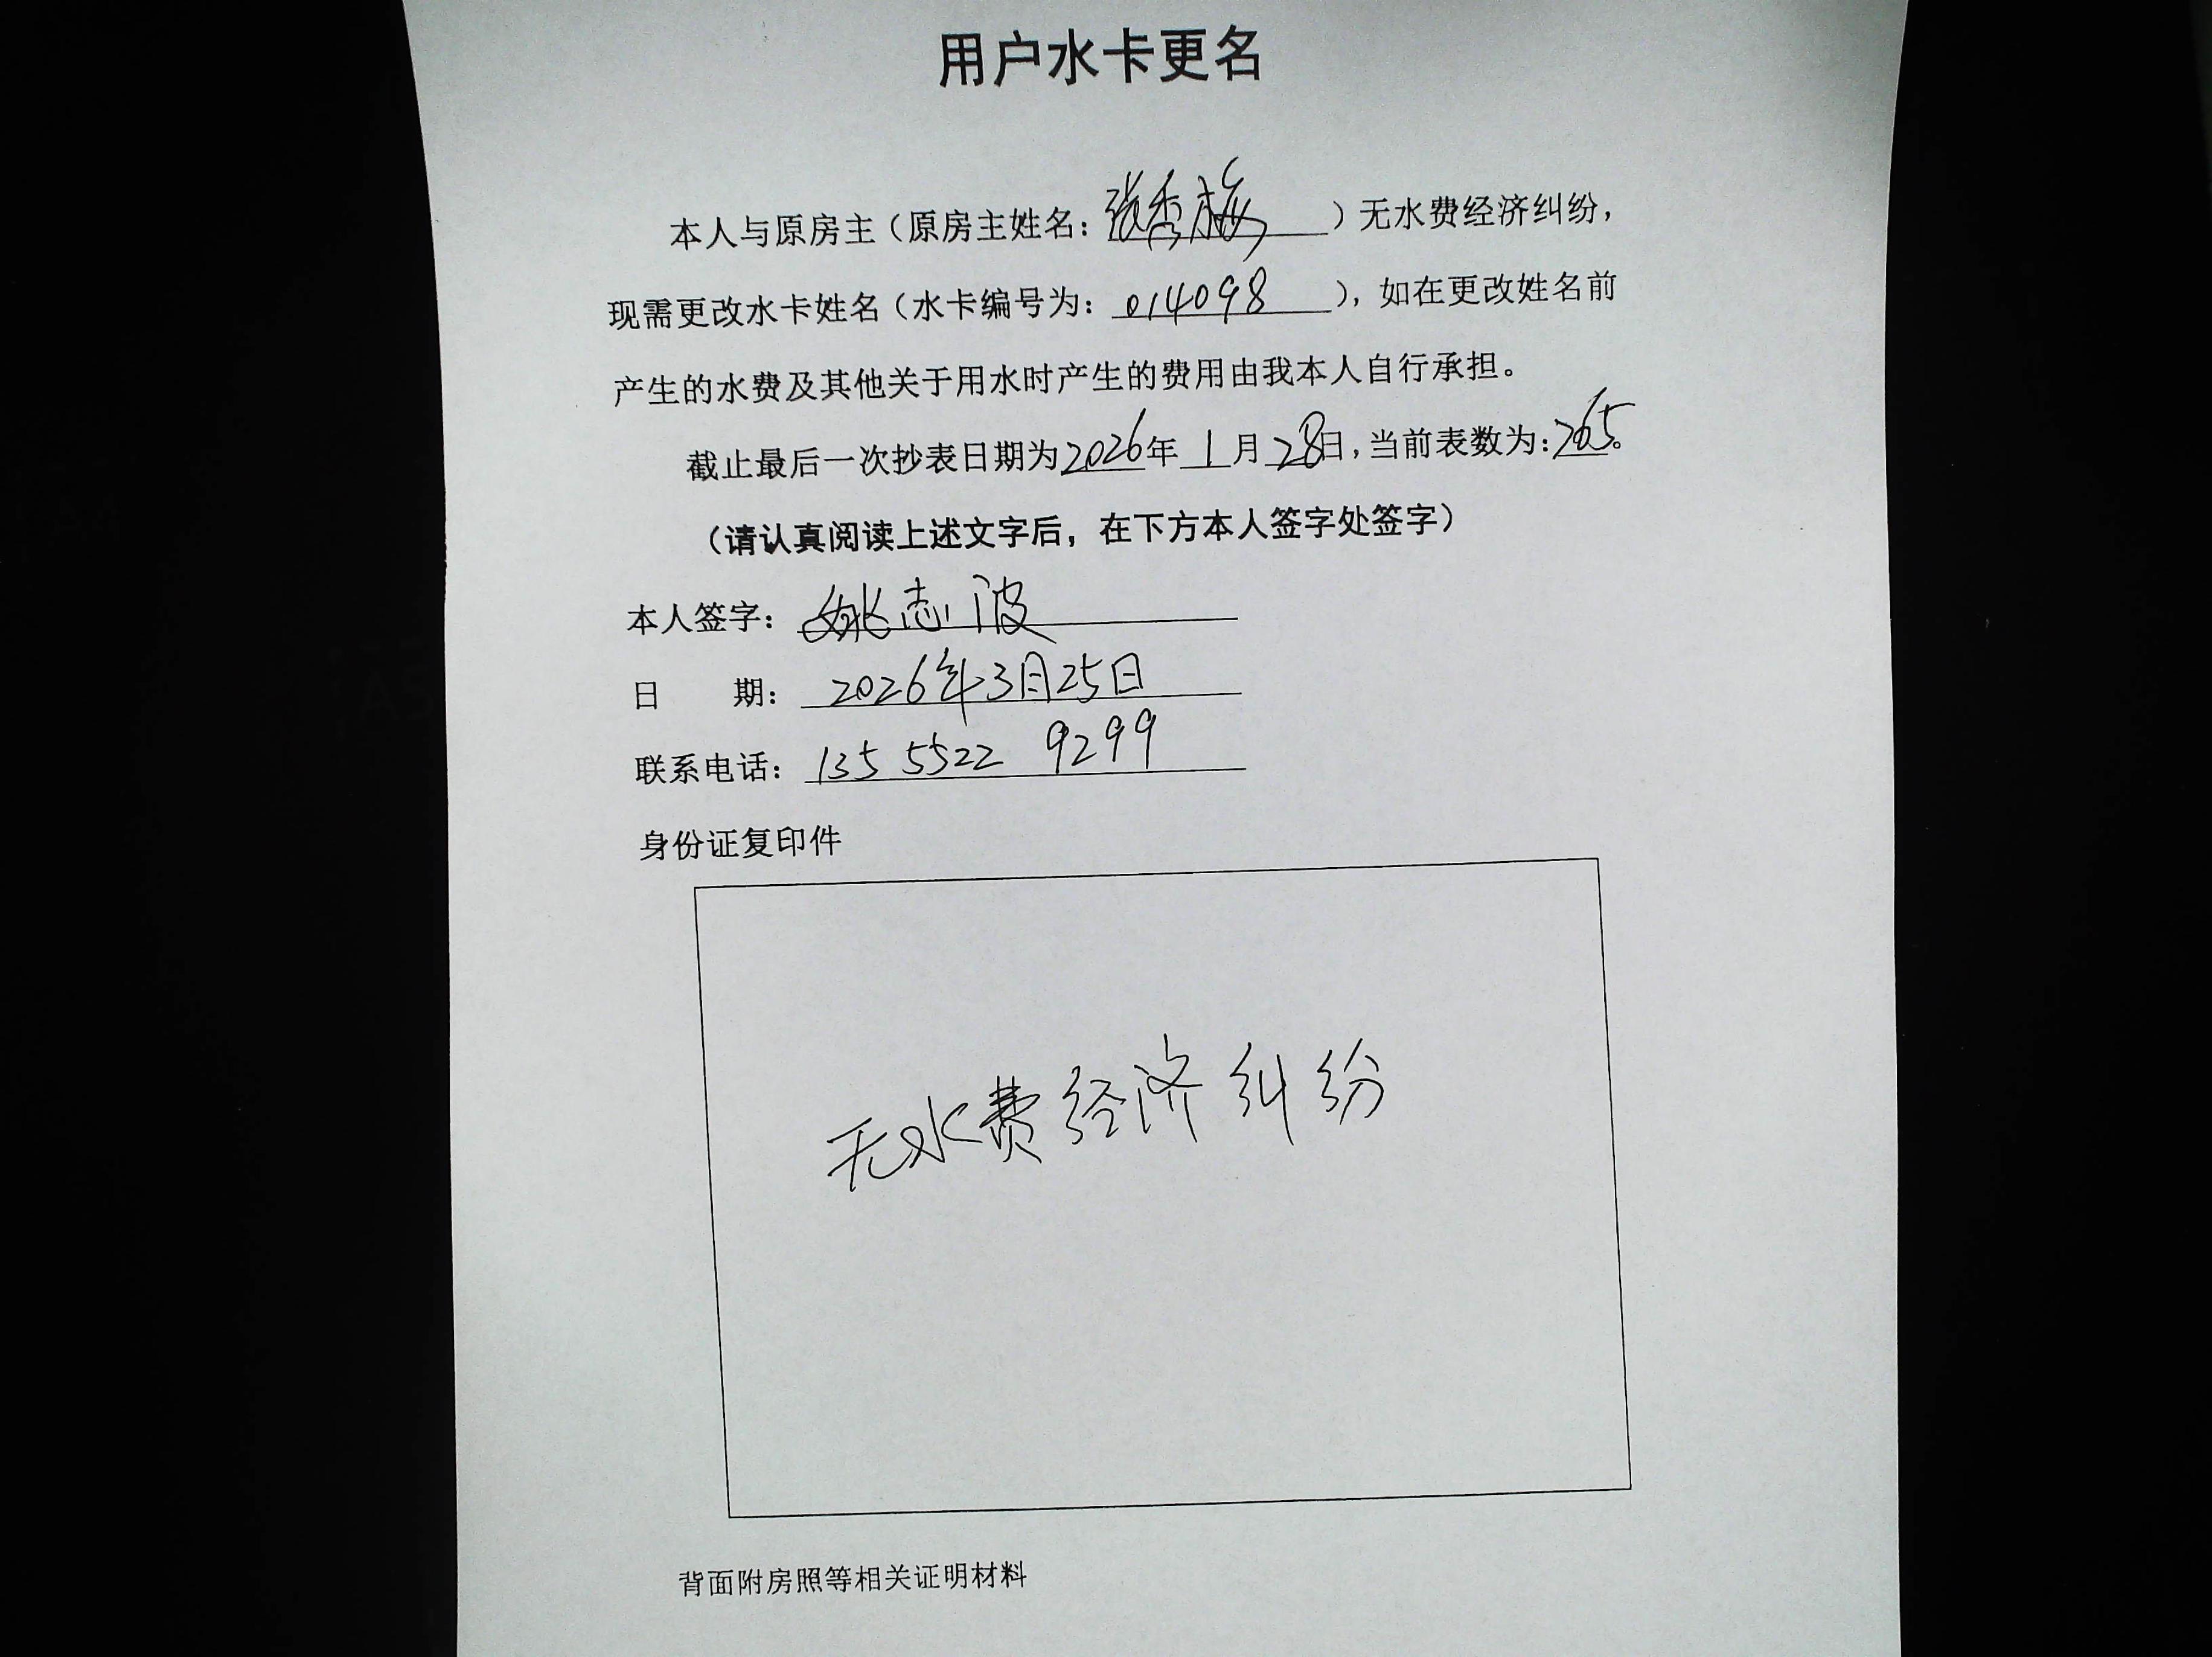 用户水卡更名
本人与原房主（原房主姓名：张秀梅）无水费经济纠纷，
现需更改水卡姓名（水卡编号为：014098），如在更改姓名前
产生的水费及其他关于用水时产生的费用由我本人自行承担。
截止最后一次抄表日期为2026年1月28日，当前表数为：265。
（请认真阅读上述文字后，在下方本人签字处签字）
本人签字：姚志波
日 期：2026年3月25日
联系电话：135 5522 9299
身份证复印件
无水费经济纠纷
背面附房照等相关证明材料